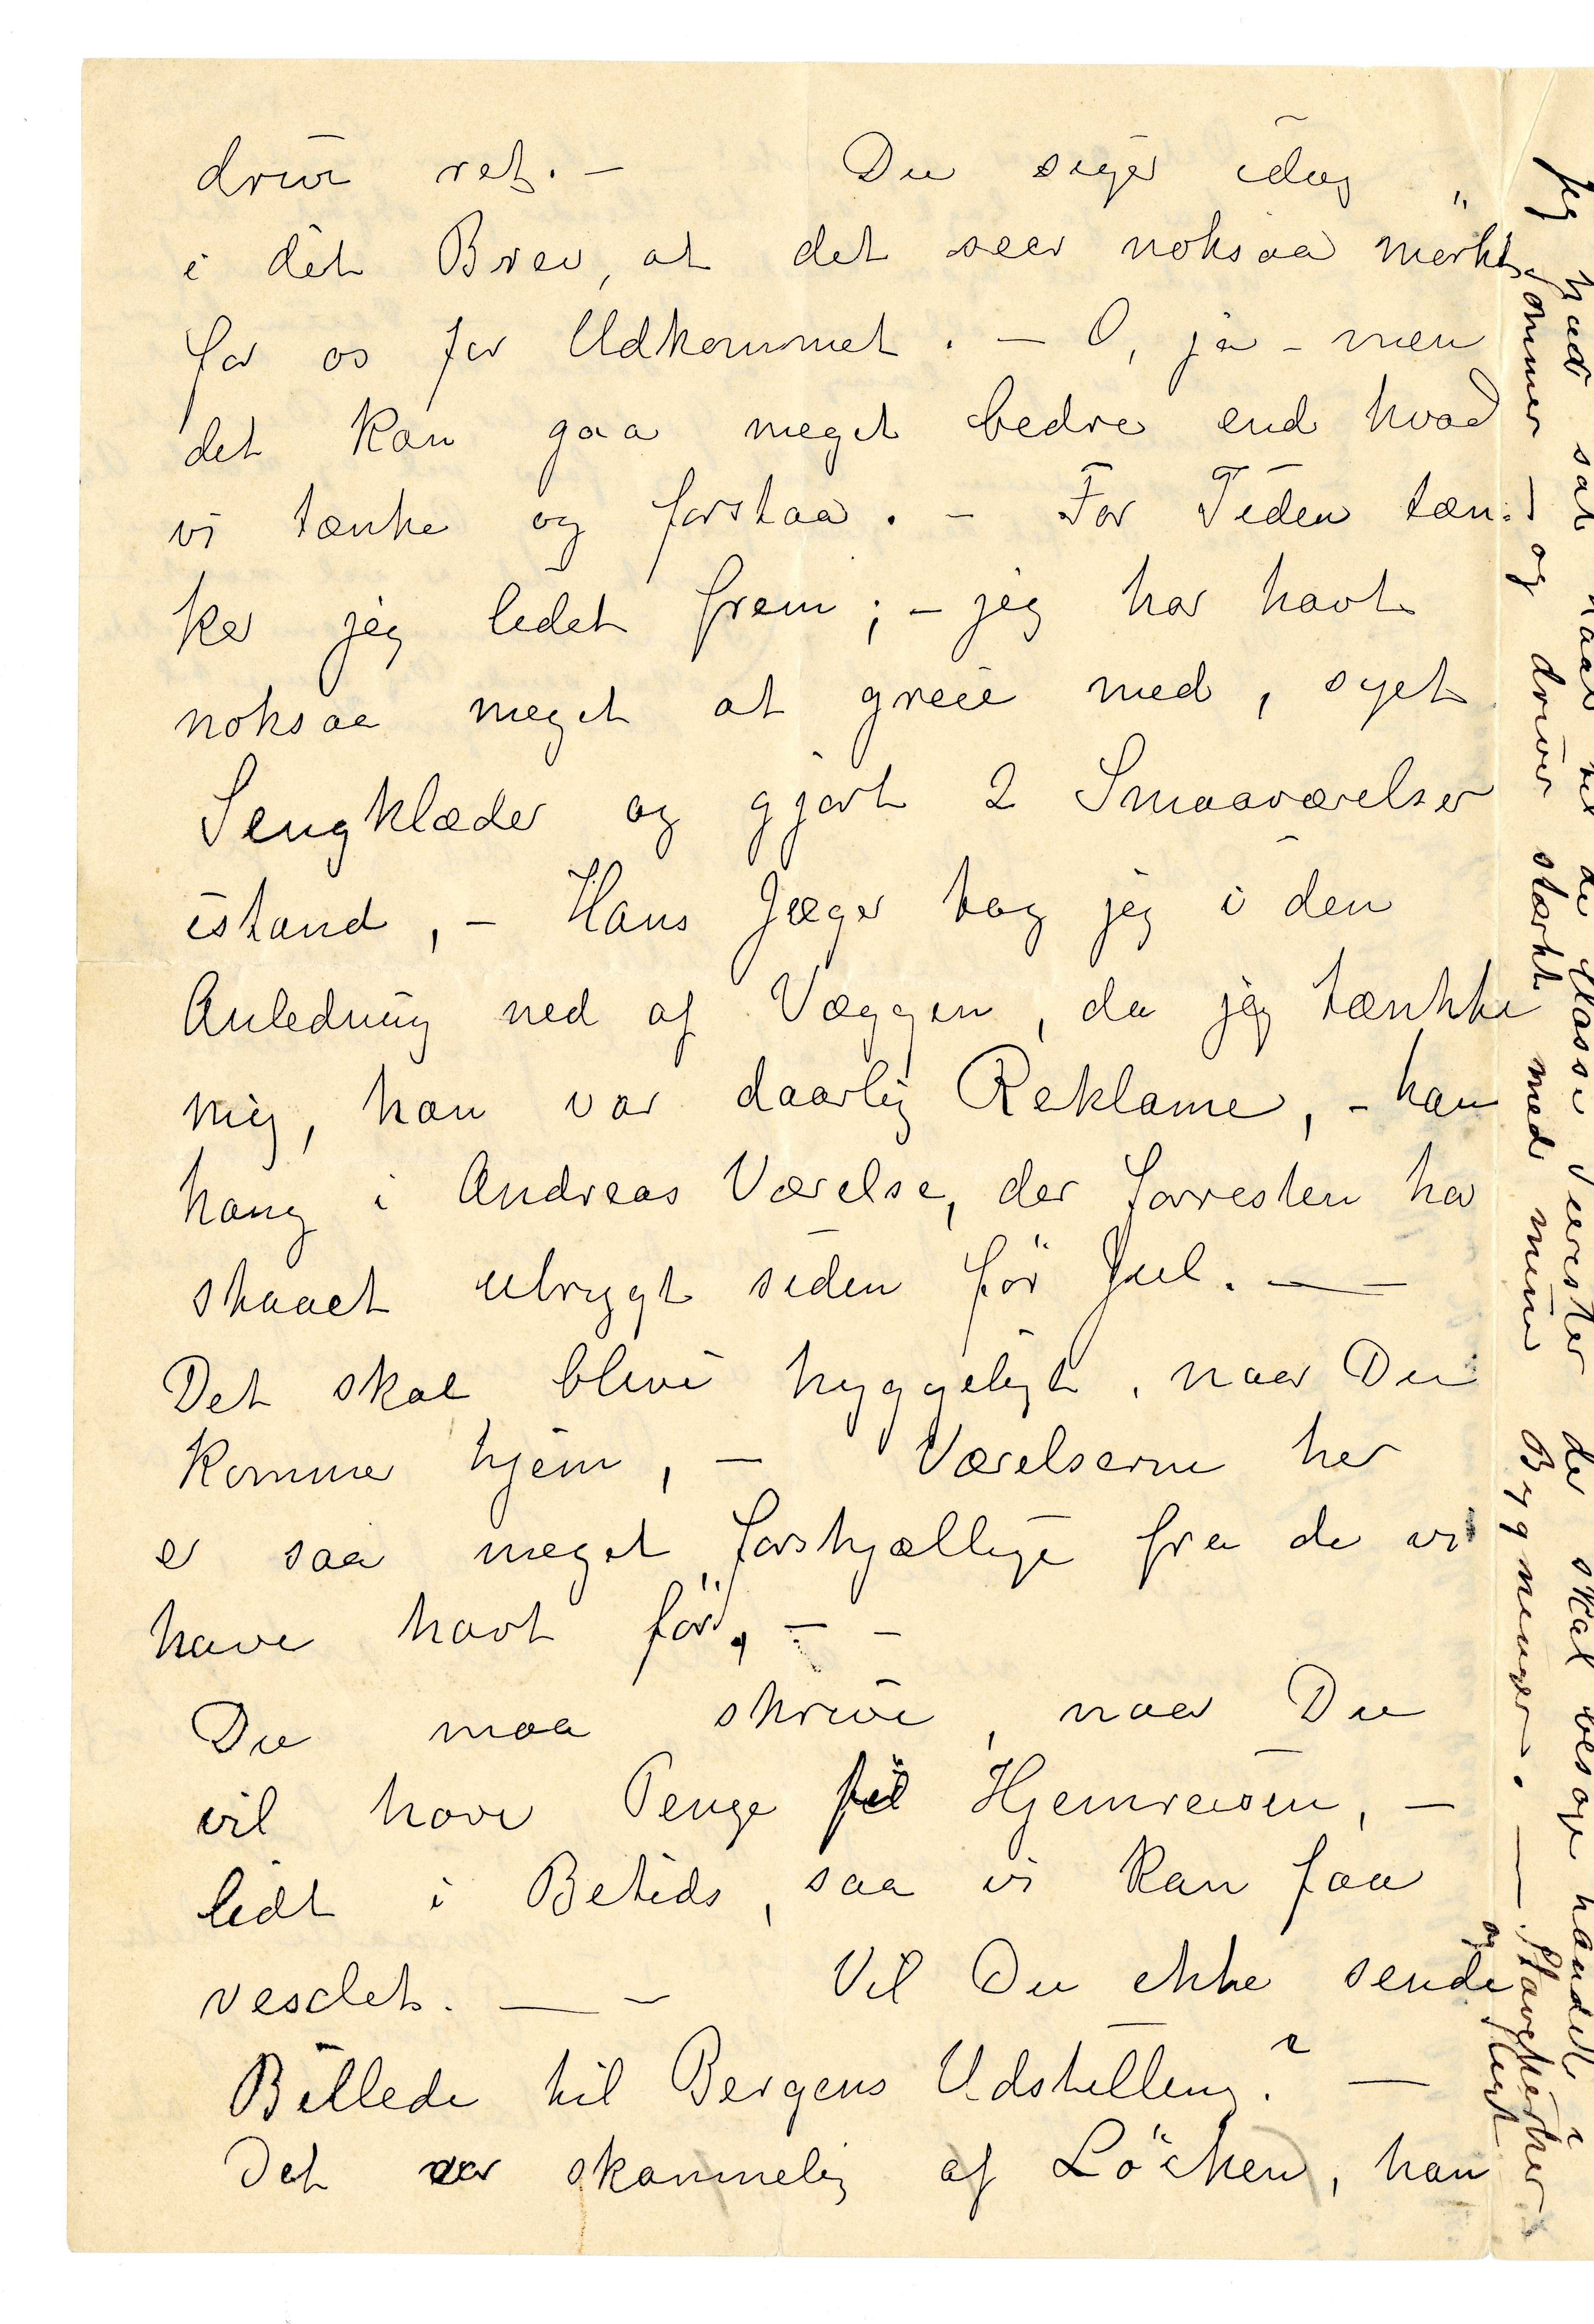 drive ret. — Du siger idag
i dit Brev, at det seer noksaa mørkt
for os for Udkommet. — O, ja - men
det kan gaa meget bedre end hvad
vi tænke og forstaa. — For Tiden tæn-
ker jeg lidet frem; — jeg har havt
noksaa meget at greie med, syet
Sengklæder og gjort 2 Smaaværelser
istand, — Hans Jæger tog jeg i den
Anledning ned af Væggen, da jeg tænkte
mig, han var daarlig Reklame, — han
hang i Andreas Værelse, der forresten har
staaet ubrygt siden før Jul. —
Det skal blive hyggeligt, naar Du
kommer hjem, — Værelserne her
er saa meget forskjællige fra de vi
have havt før, — —
Du maa skrive, naar Du
vil have Penge til Hjemreisen, —
lidt i Betids, saa vi kan faa
vexlet. — — Vil Du ikke sende
Billede til Bergens Udstilling? —
Det var skammelig af Löchen, han
Jeg har sat til de Masse der skal besøge
Sommer — og driver stærkt med mine Bygninger. —
og